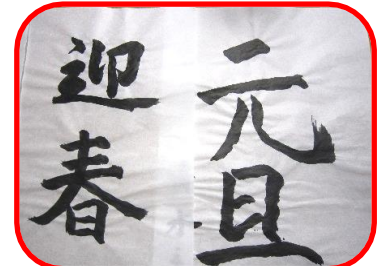 元旦
迎春